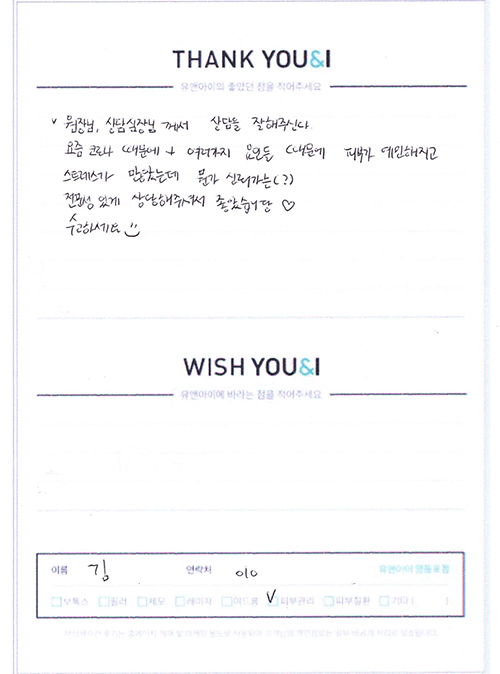 THANK YOU&I
유앤아이의 좋았던 점을 적어주세요
v 원장님, 상담실장님 께서 상담을 잘해주신다.
요즘 코로나 때문에 + 여러가지 요인들 때문에 피부가 예민해지고
스트레스가 많았는데 뭔가 신뢰가는(?)
전문성 있게 상담해주셔서 좋았습니당 ♡
수고하세요
WISH YOU&I
유앤아이에 바라는 점을 적어주세요
이름 김 연락처 010 유앤아이 영등포점
보톡스 필러 제모 레이저 여드름 V 피부관리 피부질환 기타 ( )